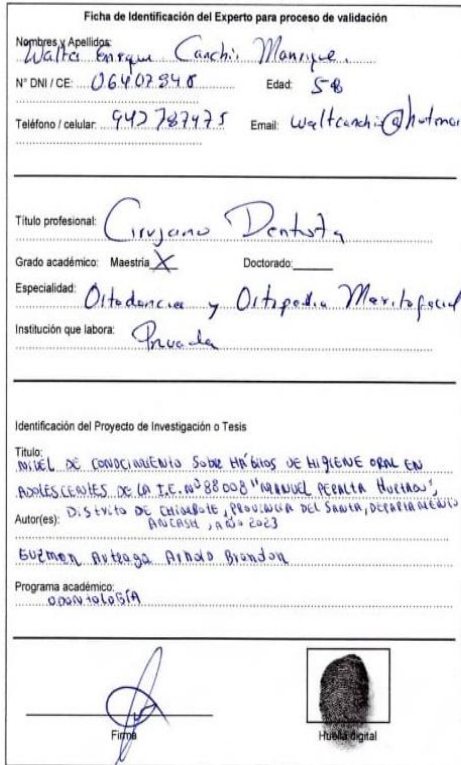 Ficha de Identificación del Experto para proceso de validación
Nombres y Apellidos:
Walter Enrique Canchis Manrique.
N° DNI / CE: 06407840 Edad: 58
Teléfono / celular: 942787475 Email: waltcanchis@hotmai
Título profesional: Cirujano Dentista
Grado académico: Maestría X Doctorado:
Especialidad:
Ortodoncia y Ortopedia Maxilofacial
Institución que labora: Privada
Identificación del Proyecto de Investigación o Tesis
Titulo:
NIVEL DE CONOCIMIENTO Sobre HÁBITOS DE HIGIENE ORAL EN
ADOLESCENTES DE LA I.E. N° 88008 "MANUEL PERALTA HURTADO",
DIStrito DE CHIMBOTE, PROVINCIA DEL SANTA, DEPARTAMENTO
Autor(es): ANCASH, AÑO 2023
Guzmen Arteaga Arnold Brandon
Programa académico:
ODONTOLOGÍA
Firma Huella digital